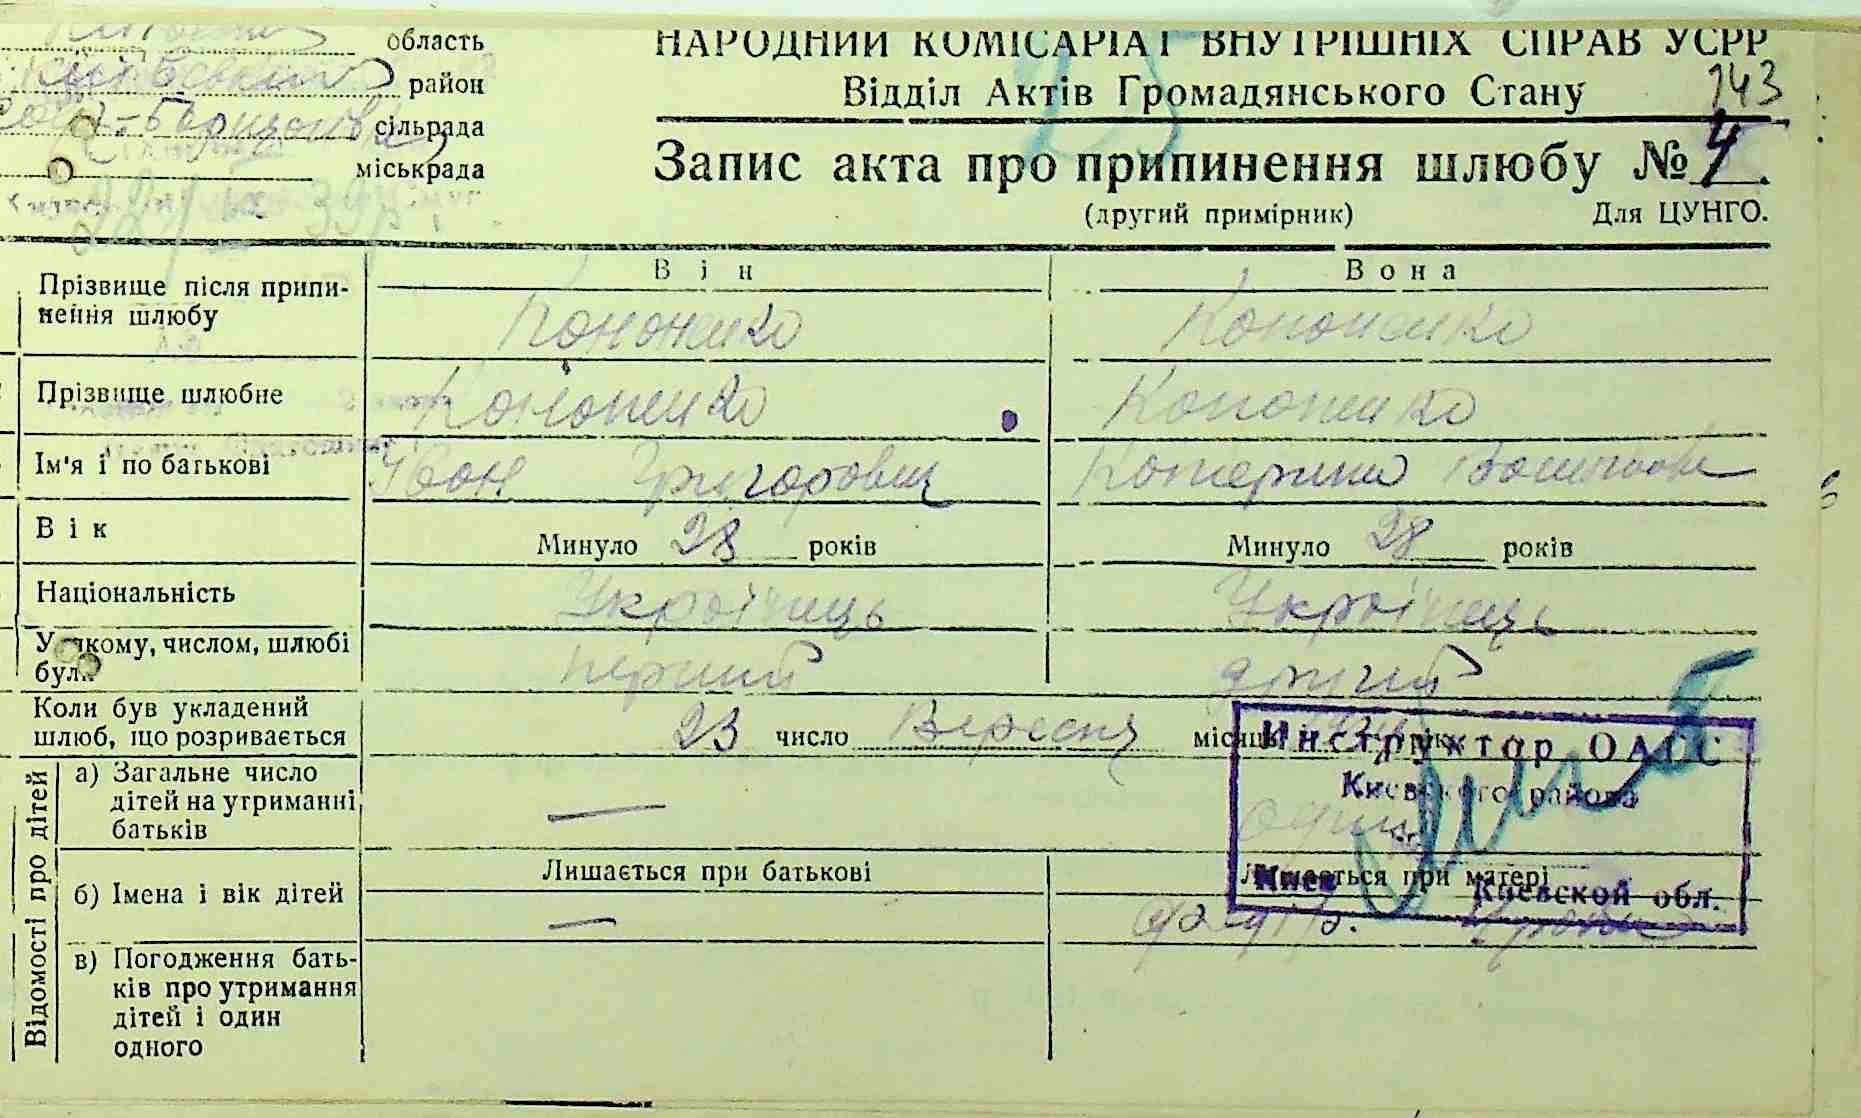 область
район
сільрада
міськрада
НАРОДНИЙ КОМІСАРІАТ ВНУТРІШНІХ СПРАВ УСРР
Відділ Актів Громадянського Стану
143
Запис акта про припинення шлюбу № 4.
(другий примірник) Для ЦУНГО.
Він Вона
Прізвище після припи-
нення шлюбу
Кононенко Кононенко
Прізвище шлюбне Кононенко Кононенко
Ім'я і по батькові Іван Григорович Катерина
Вік Минуло 28 років Минуло 28 років
Національність Українець Українець
У якому, числом, шлюбі
були
перший другий
Коли був укладений
шлюб, що розривається
23 число Вересня місяць
Інструктор ОАГС
Киевского района
Киев Киевской обл.
Відомості про дітей
а) Загальне число
дітей на утриманні
батьків
—
один
б) Імена і вік дітей
Лишається при батькові Лишається при матері
—
в) Погодження бать-
ків про утримання
дітей і один
одного